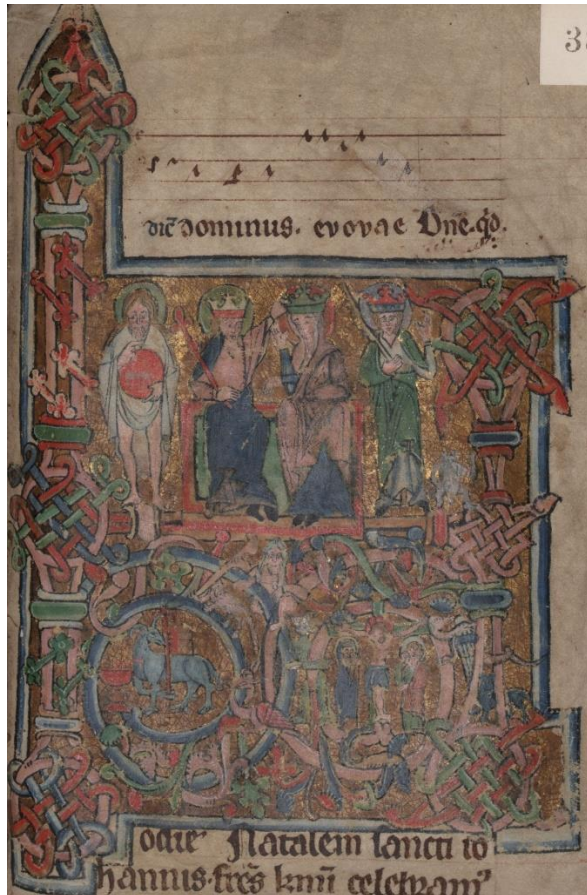 dic̄ dominus. evovae Dn̄e. q̄d.
odie Natalem sancti io
hannis. fr̄es k̄mi celebram᾽